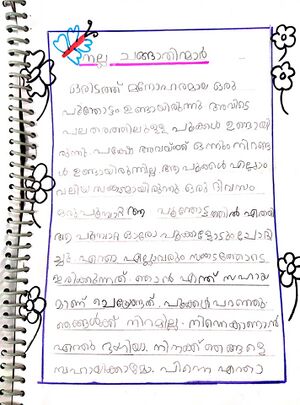 നല്ല ചങ്ങാതിന്മാർ
ഒരിടത്ത് മനോഹരമായ ഒരു
പൂന്തോട്ടം ഉണ്ടായിരുന്നു അവിടെ
പല തരത്തിലുള്ള പൂക്കൾ ഉണ്ടായി
രുന്നു പക്ഷേ അവയ്ക്ക് ഒന്നും നിറങ്ങ
ൾ ഉണ്ടായിരുന്നില്ല ആ പൂക്കൾ എല്ലാം
വലിയ സങ്കടത്തിലായിരുന്നു ഒരു ദിവസം
ഒരു പൂമ്പാറ്റ ആ പൂന്തോട്ടത്തിൽ എത്തി
ആ പൂമ്പാറ്റ ഓരോ പൂക്കളോടും ചോദി
ച്ചു എന്താ എല്ലാവരും സങ്കടത്തോടെ
ഇരിക്കുന്നത് ഞാൻ എന്ത് സഹായ
മാണ് ചെയ്യേണ്ടത്. പൂക്കൾ പറഞ്ഞു
ഞങ്ങൾക്ക് നിറമില്ല. നിന്നെ കാണാൻ
എന്ത് ഭംഗിയാ. നിനക്ക് ഞങ്ങളെ
സഹായിക്കാമോ. പിന്നെ എന്താ